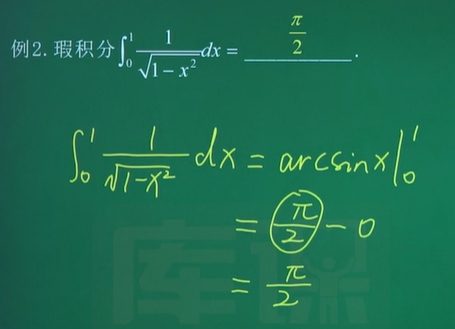 例2. 瑕积分∫₀¹ 1/√(1-x²) dx = π/2 .
∫₀¹ 1/√(1-x²) dx = arcsinx|₀¹
= π/2 - 0
= π/2
库课